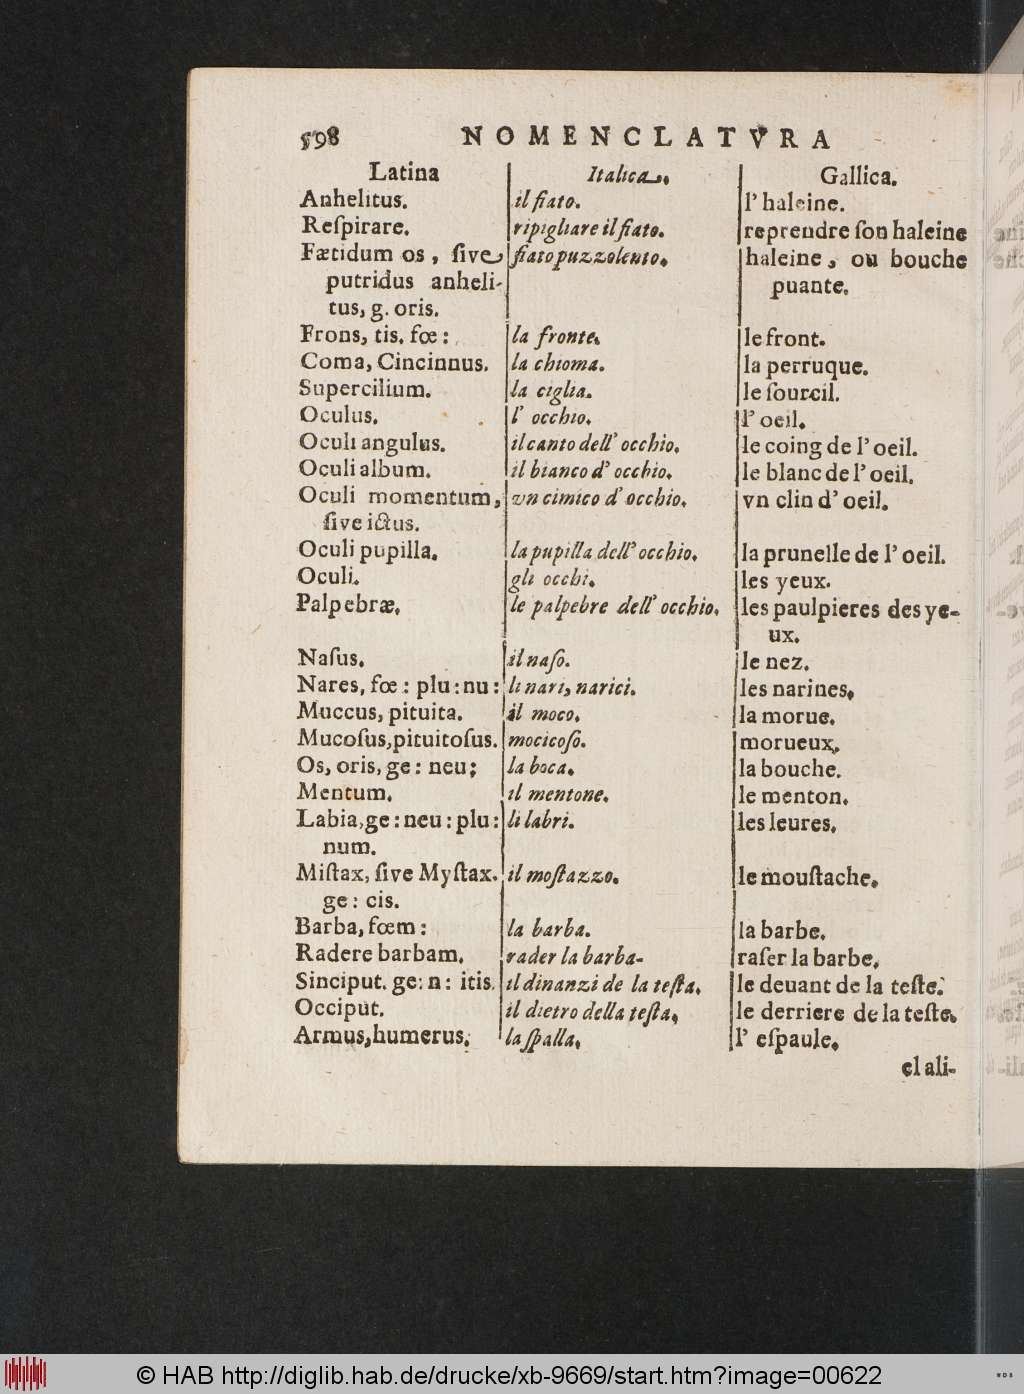 598 NOMENCLATVRA
Latina Italica. Gallica.
Anhelitus. il fiato. l' haleine.
Reſpirare. ripigliare il fiato. reprendre ſon haleine
Fætidum os, ſive fiato puzzolento. haleine, ou bouche
putridus anheli- puante.
tus, g. oris.
Frons, tis. fœ: la fronte. le front.
Coma, Cincinnus. la chioma. la perruque.
Supercilium. la ciglia. le ſourcil.
Oculus. l' occhio. l' oeil.
Oculi angulus. il canto dell' occhio. le coing de l' oeil.
Oculi album. il bianco d' occhio. le blanc de l' oeil.
Oculi momentum, vn cimico d' occhio. vn clin d' oeil.
ſive ictus.
Oculi pupilla. la pupilla dell' occhio. la prunelle de l' oeil.
Oculi. gli occhi. les yeux.
Palpebræ. le palpebre dell' occhio. les paulpieres des ye-
ux.
Naſus. il naſo. le nez.
Nares, fœ: plu: nu: li nari, narici. les narines.
Muccus, pituita. il moco. la morue.
Mucoſus, pituitoſus. mocicoſo. morueux.
Os, oris, ge: neu; la boca. la bouche.
Mentum. il mentone. le menton.
Labia, ge: neu: plu: li labri. les leures.
num.
Miſtax, ſive Myſtax. il moſtazzo. le mouſtache.
ge: cis.
Barba, fœm: la barba. la barbe.
Radere barbam. rader la barba- raſer la barbe.
Sinciput. ge: n: itis. il dinanzi de la teſta. le deuant de la teſte.
Occiput. il dietro della teſta. le derriere de la teſte.
Armus, humerus. la ſpalla. l' eſpaule.
cl ali-
© HAB http://diglib.hab.de/drucke/xb-9669/start.htm?image=00622